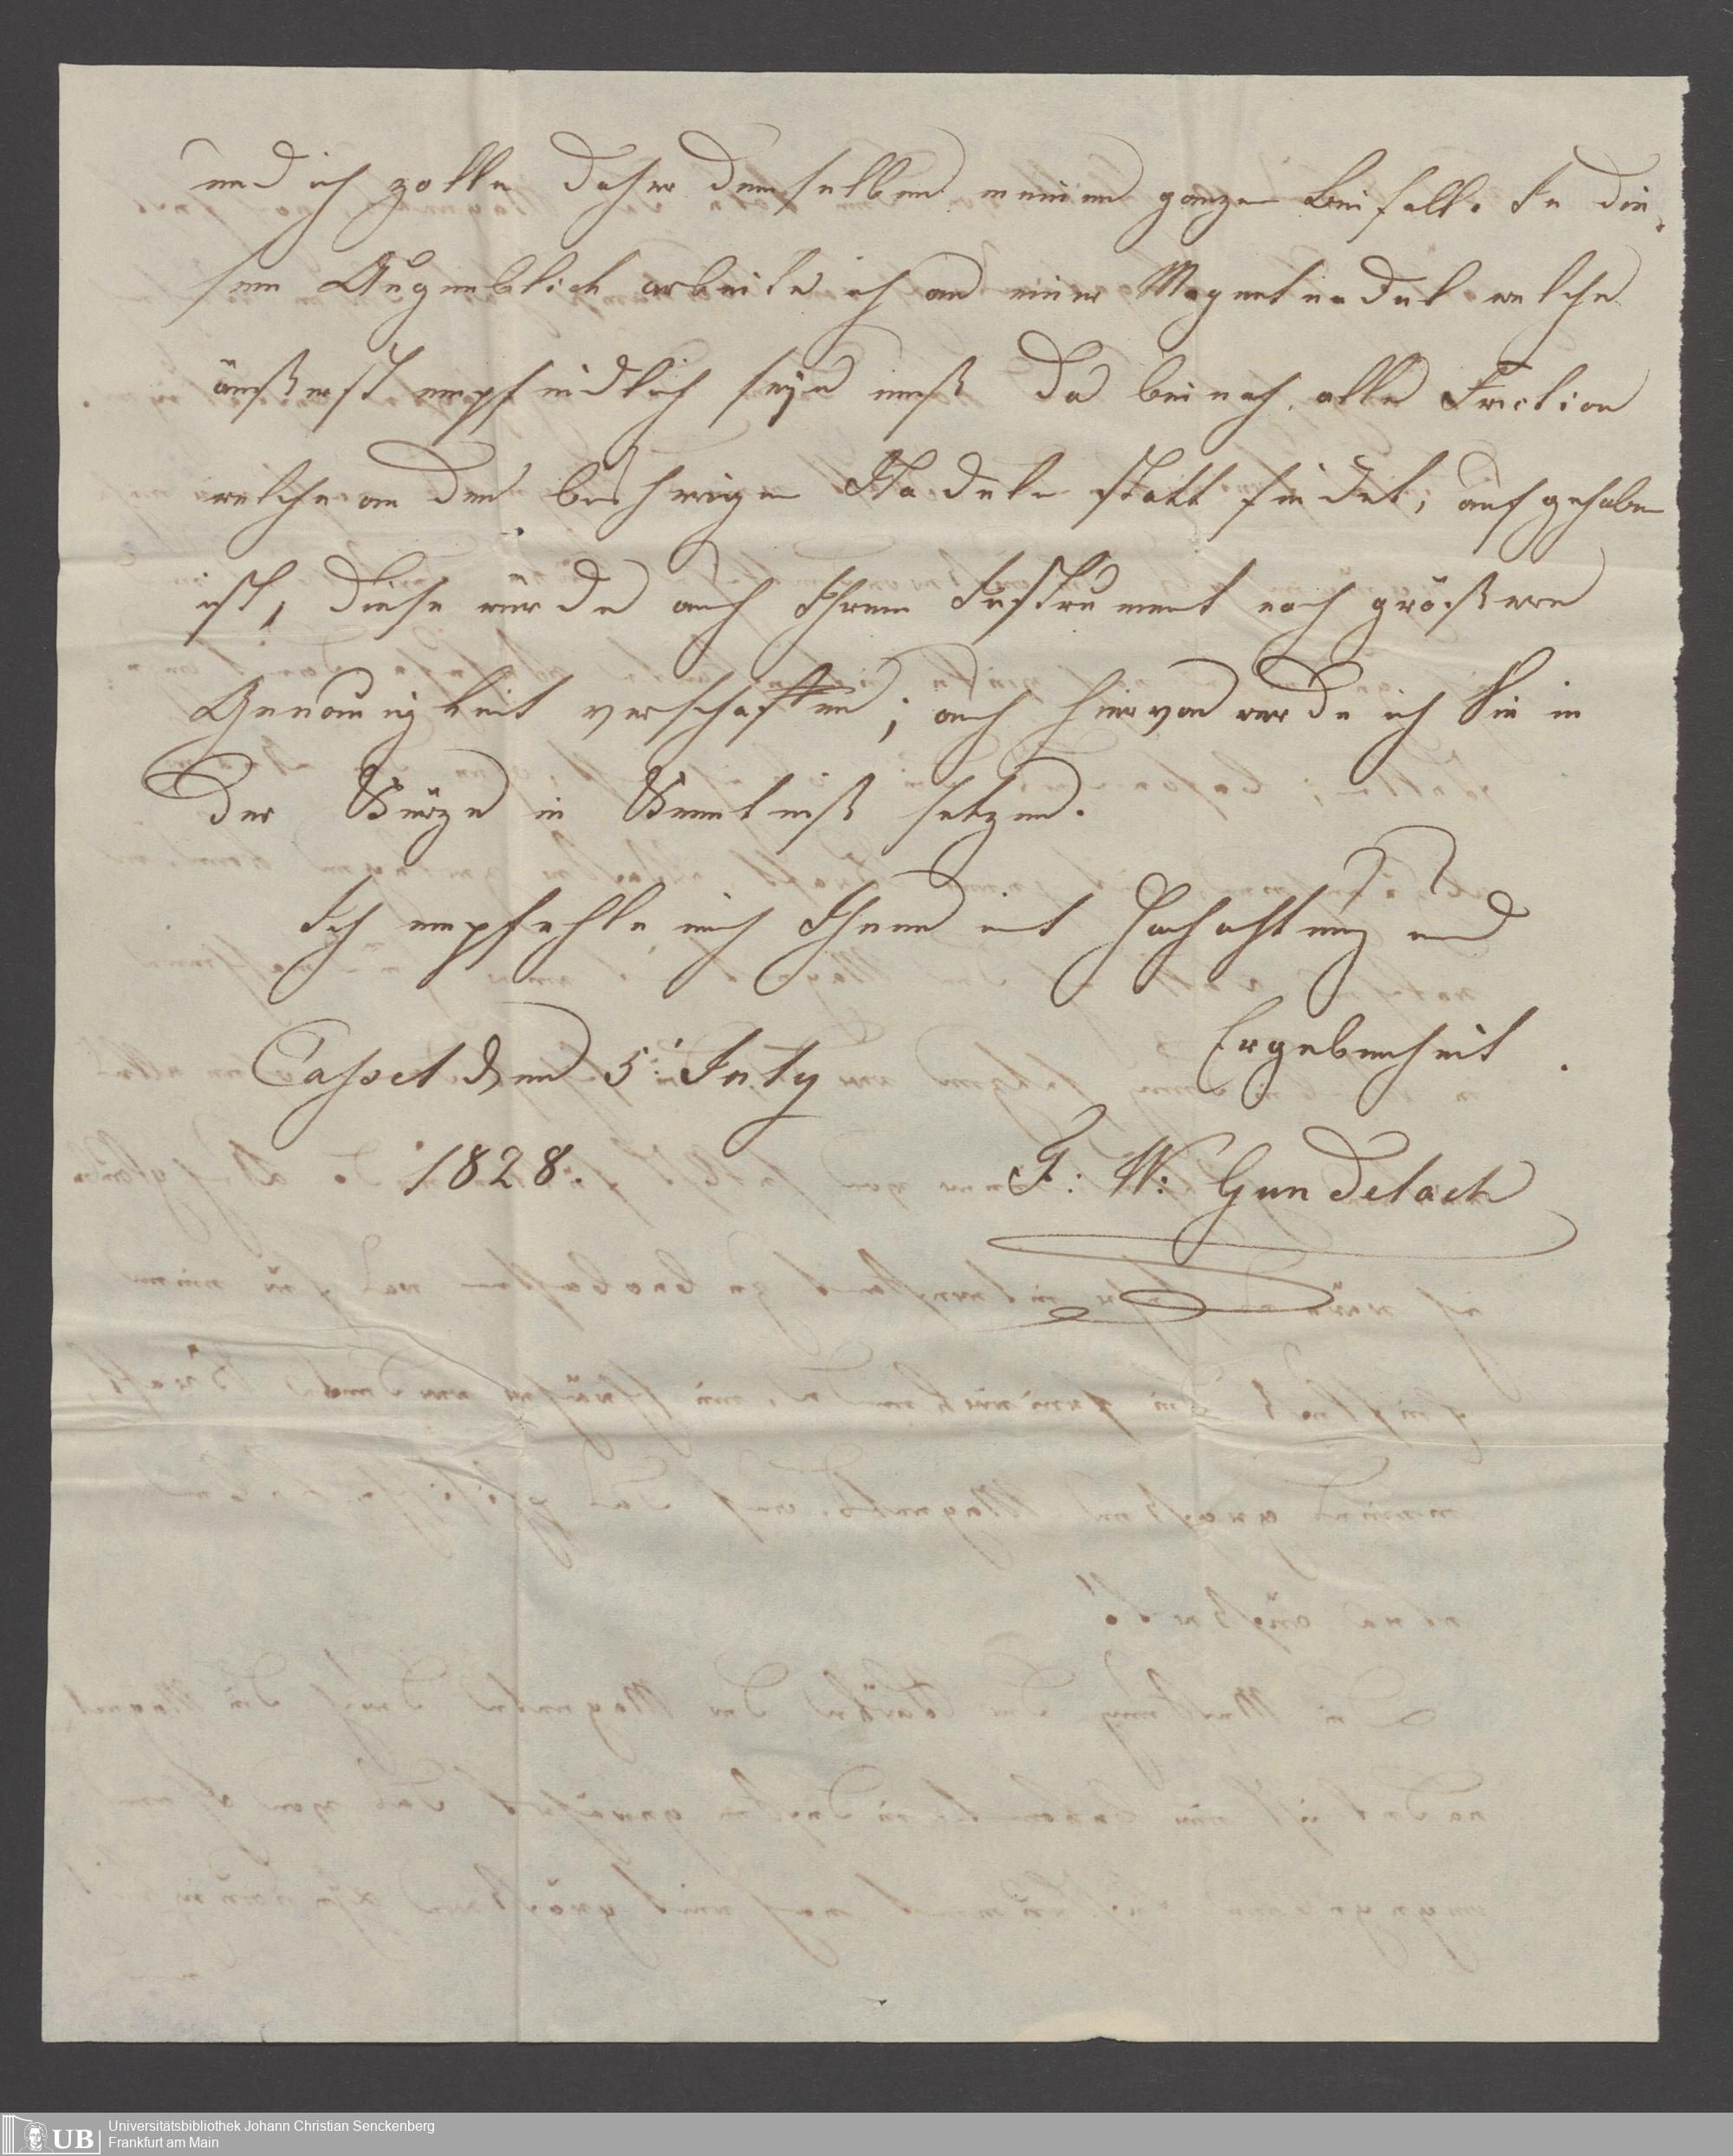 und ich zolle daher demselben meinen ganzen Beifall. In die-
sem Augenblick arbeite ich an einer Magnetnadel welche
äußerst empfindlich seyn muß da beinah alle Friction
welche an den bisherigen Nadeln statt findet, aufgehoben
ist, diese würde auch Ihrem Instrument noch größere
Genauigkeit verschaffen; auch hiervon werde ich Sie in
der Kürze in Kenntniß setzen.
Ich empfehle mich Ihnen mit Hochachtung und
Ergebenheit
Cassel den 5: July
1828.
F: W: Gundelach
UB
Universitätsbibliothek Johann Christian Senckenberg
Frankfurt am Main